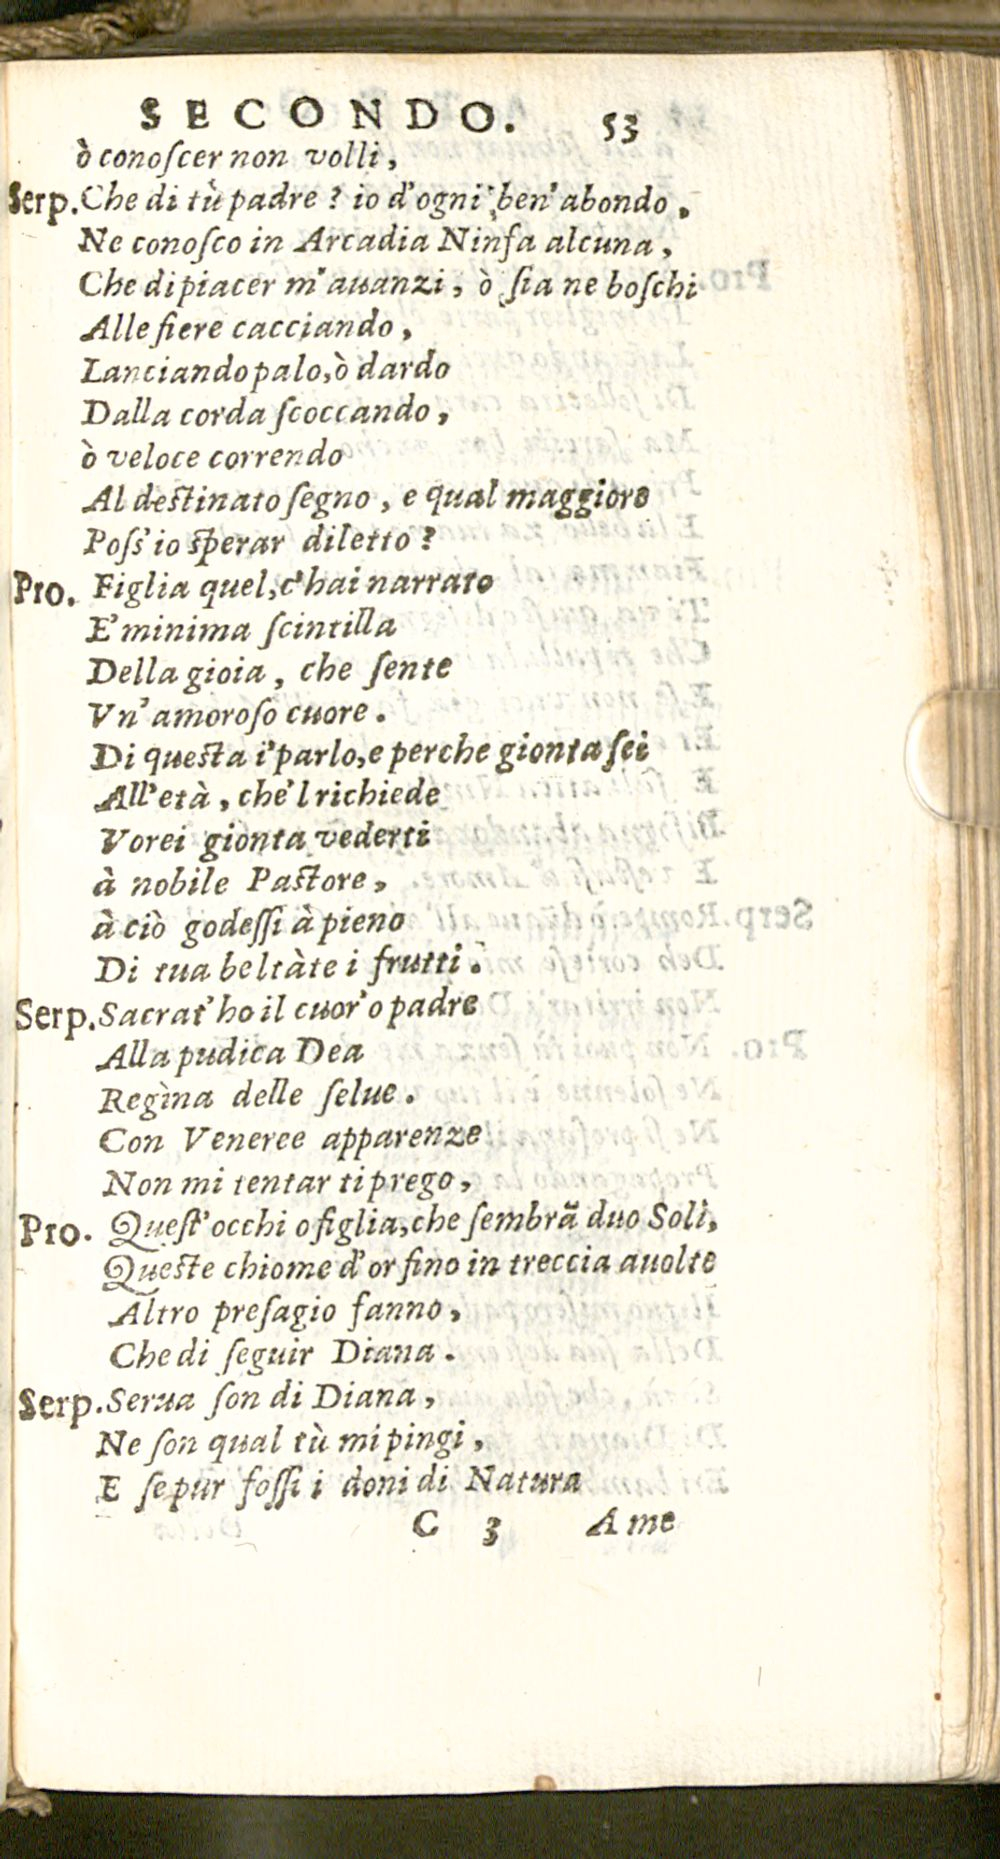 SECONDO. 53
ò conoſcer non volli,
Serp. Che di tù padre ? io d'ogni ben' abondo.
Ne conoſco in Arcadia Ninfa alcuna,
Che di piacer m'auanzi, ò ſia ne boſchi
Alle fiere cacciando,
Lanciando palo, ò dardo
Dalla corda ſcoccando,
ò veloce correndo
Al deſtinato ſegno, e qual maggiore
Poſs'io ſperar diletto?
Pro. Figlia quel, c'hai narrato
E' minima ſcintilla
Della gioia, che ſente
Vn' amoroſo cuore.
Di queſta i' parlo, e perche gionta ſei
All' età, che'l richiede
Vorei gionta vederti
à nobile Paſtore,
à ciò godeſſi à pieno
Di tua beltàte i frutti.
Serp. Sacrat' ho il cuor' o padre
Alla pudica Dea
Regìna delle ſelue.
Con Veneree apparenze
Non mi tentar ti prego,
Pro. Queſt'occhi o figlia, che ſembrã duo Soli,
Queſte chiome d'or fino in treccia auolte
Altro preſagio fanno,
Che di ſeguir Diana.
Serp. Serua ſon di Diana,
Ne ſon qual tù mi pingi,
E ſe pur foſſi i doni di Natura
C 3 A me